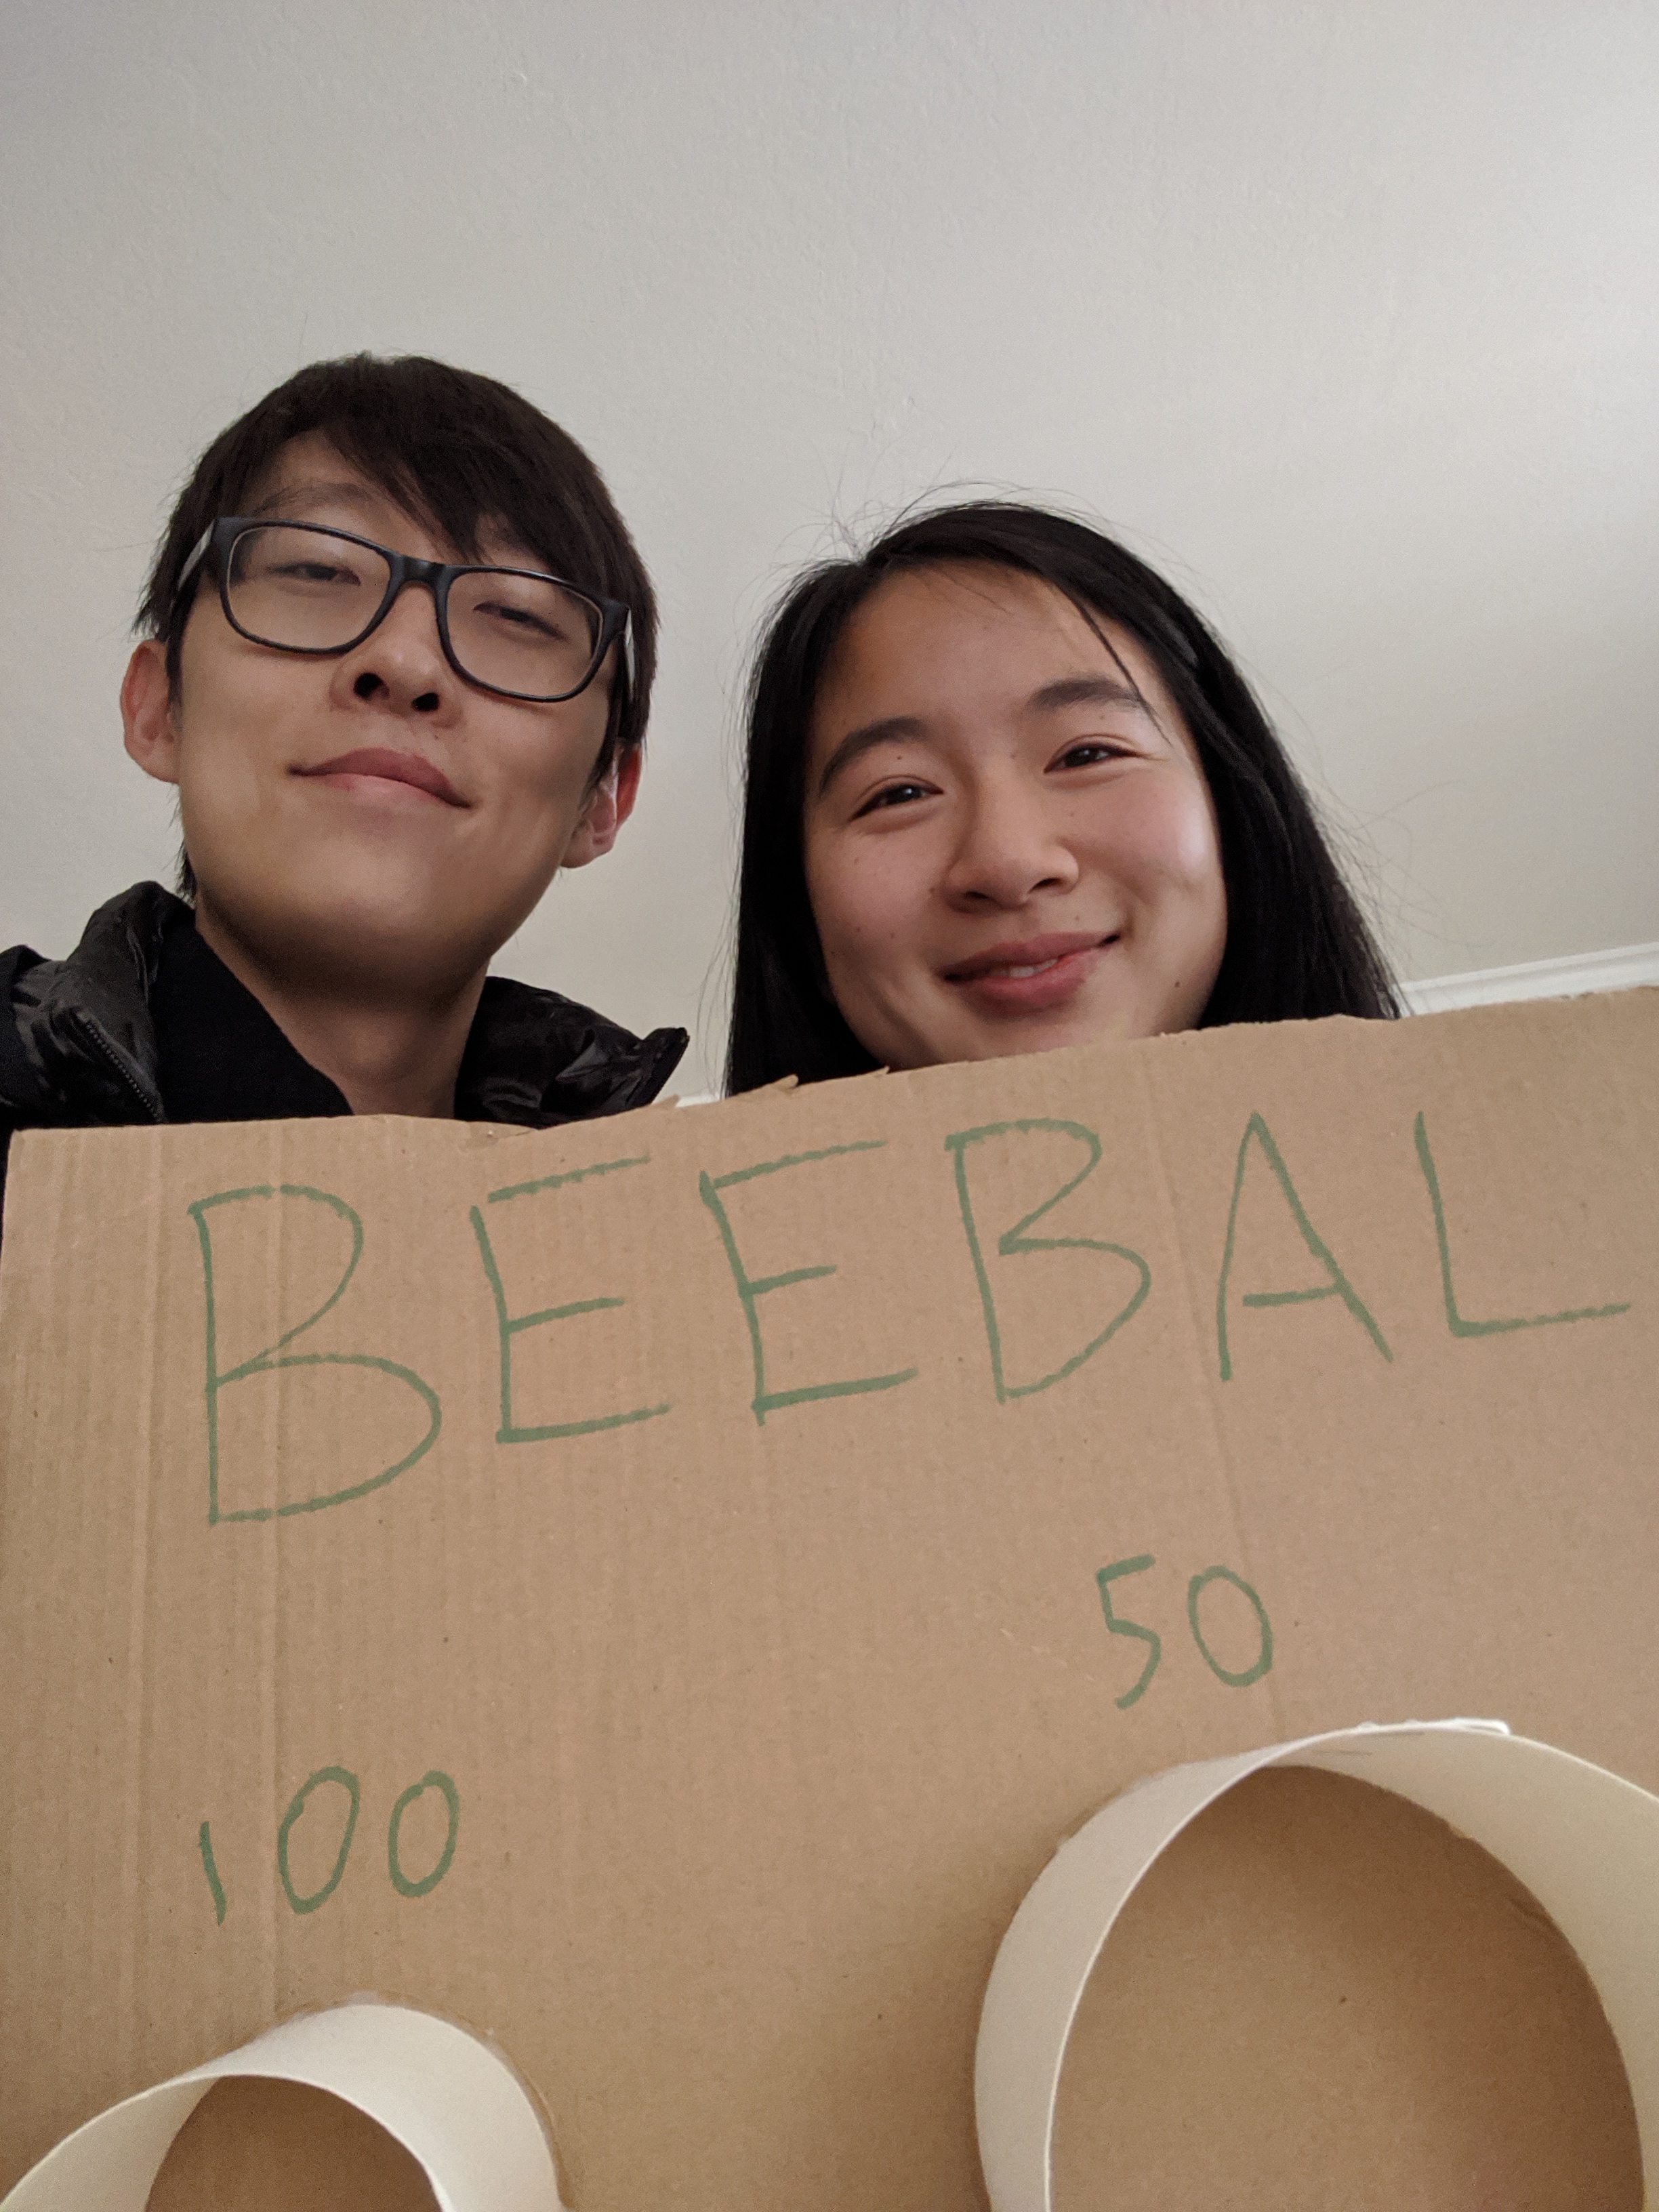 BEEBAL
50
100